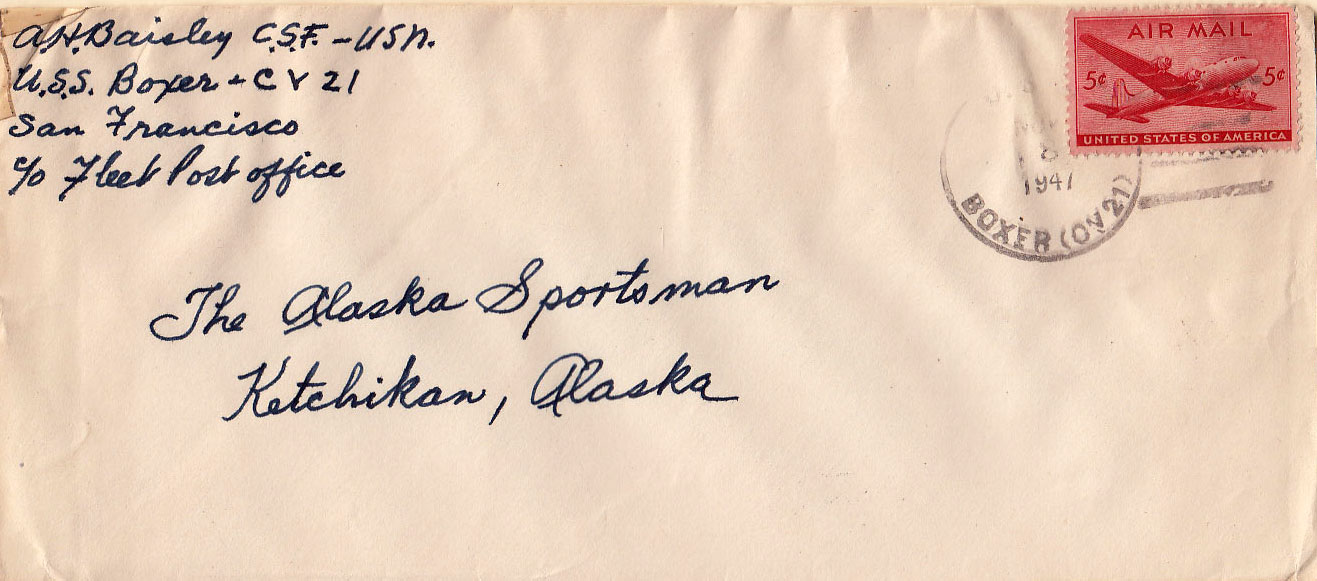 A.H. Baisley C.S.F. - USN.
U.S.S. Boxer - CV 21
San Francisco
c/o Fleet Post office
AIR MAIL
5¢ 5¢
UNITED STATES OF AMERICA
1947
BOXER (CV 21)
The Alaska Sportsman
Ketchikan, Alaska